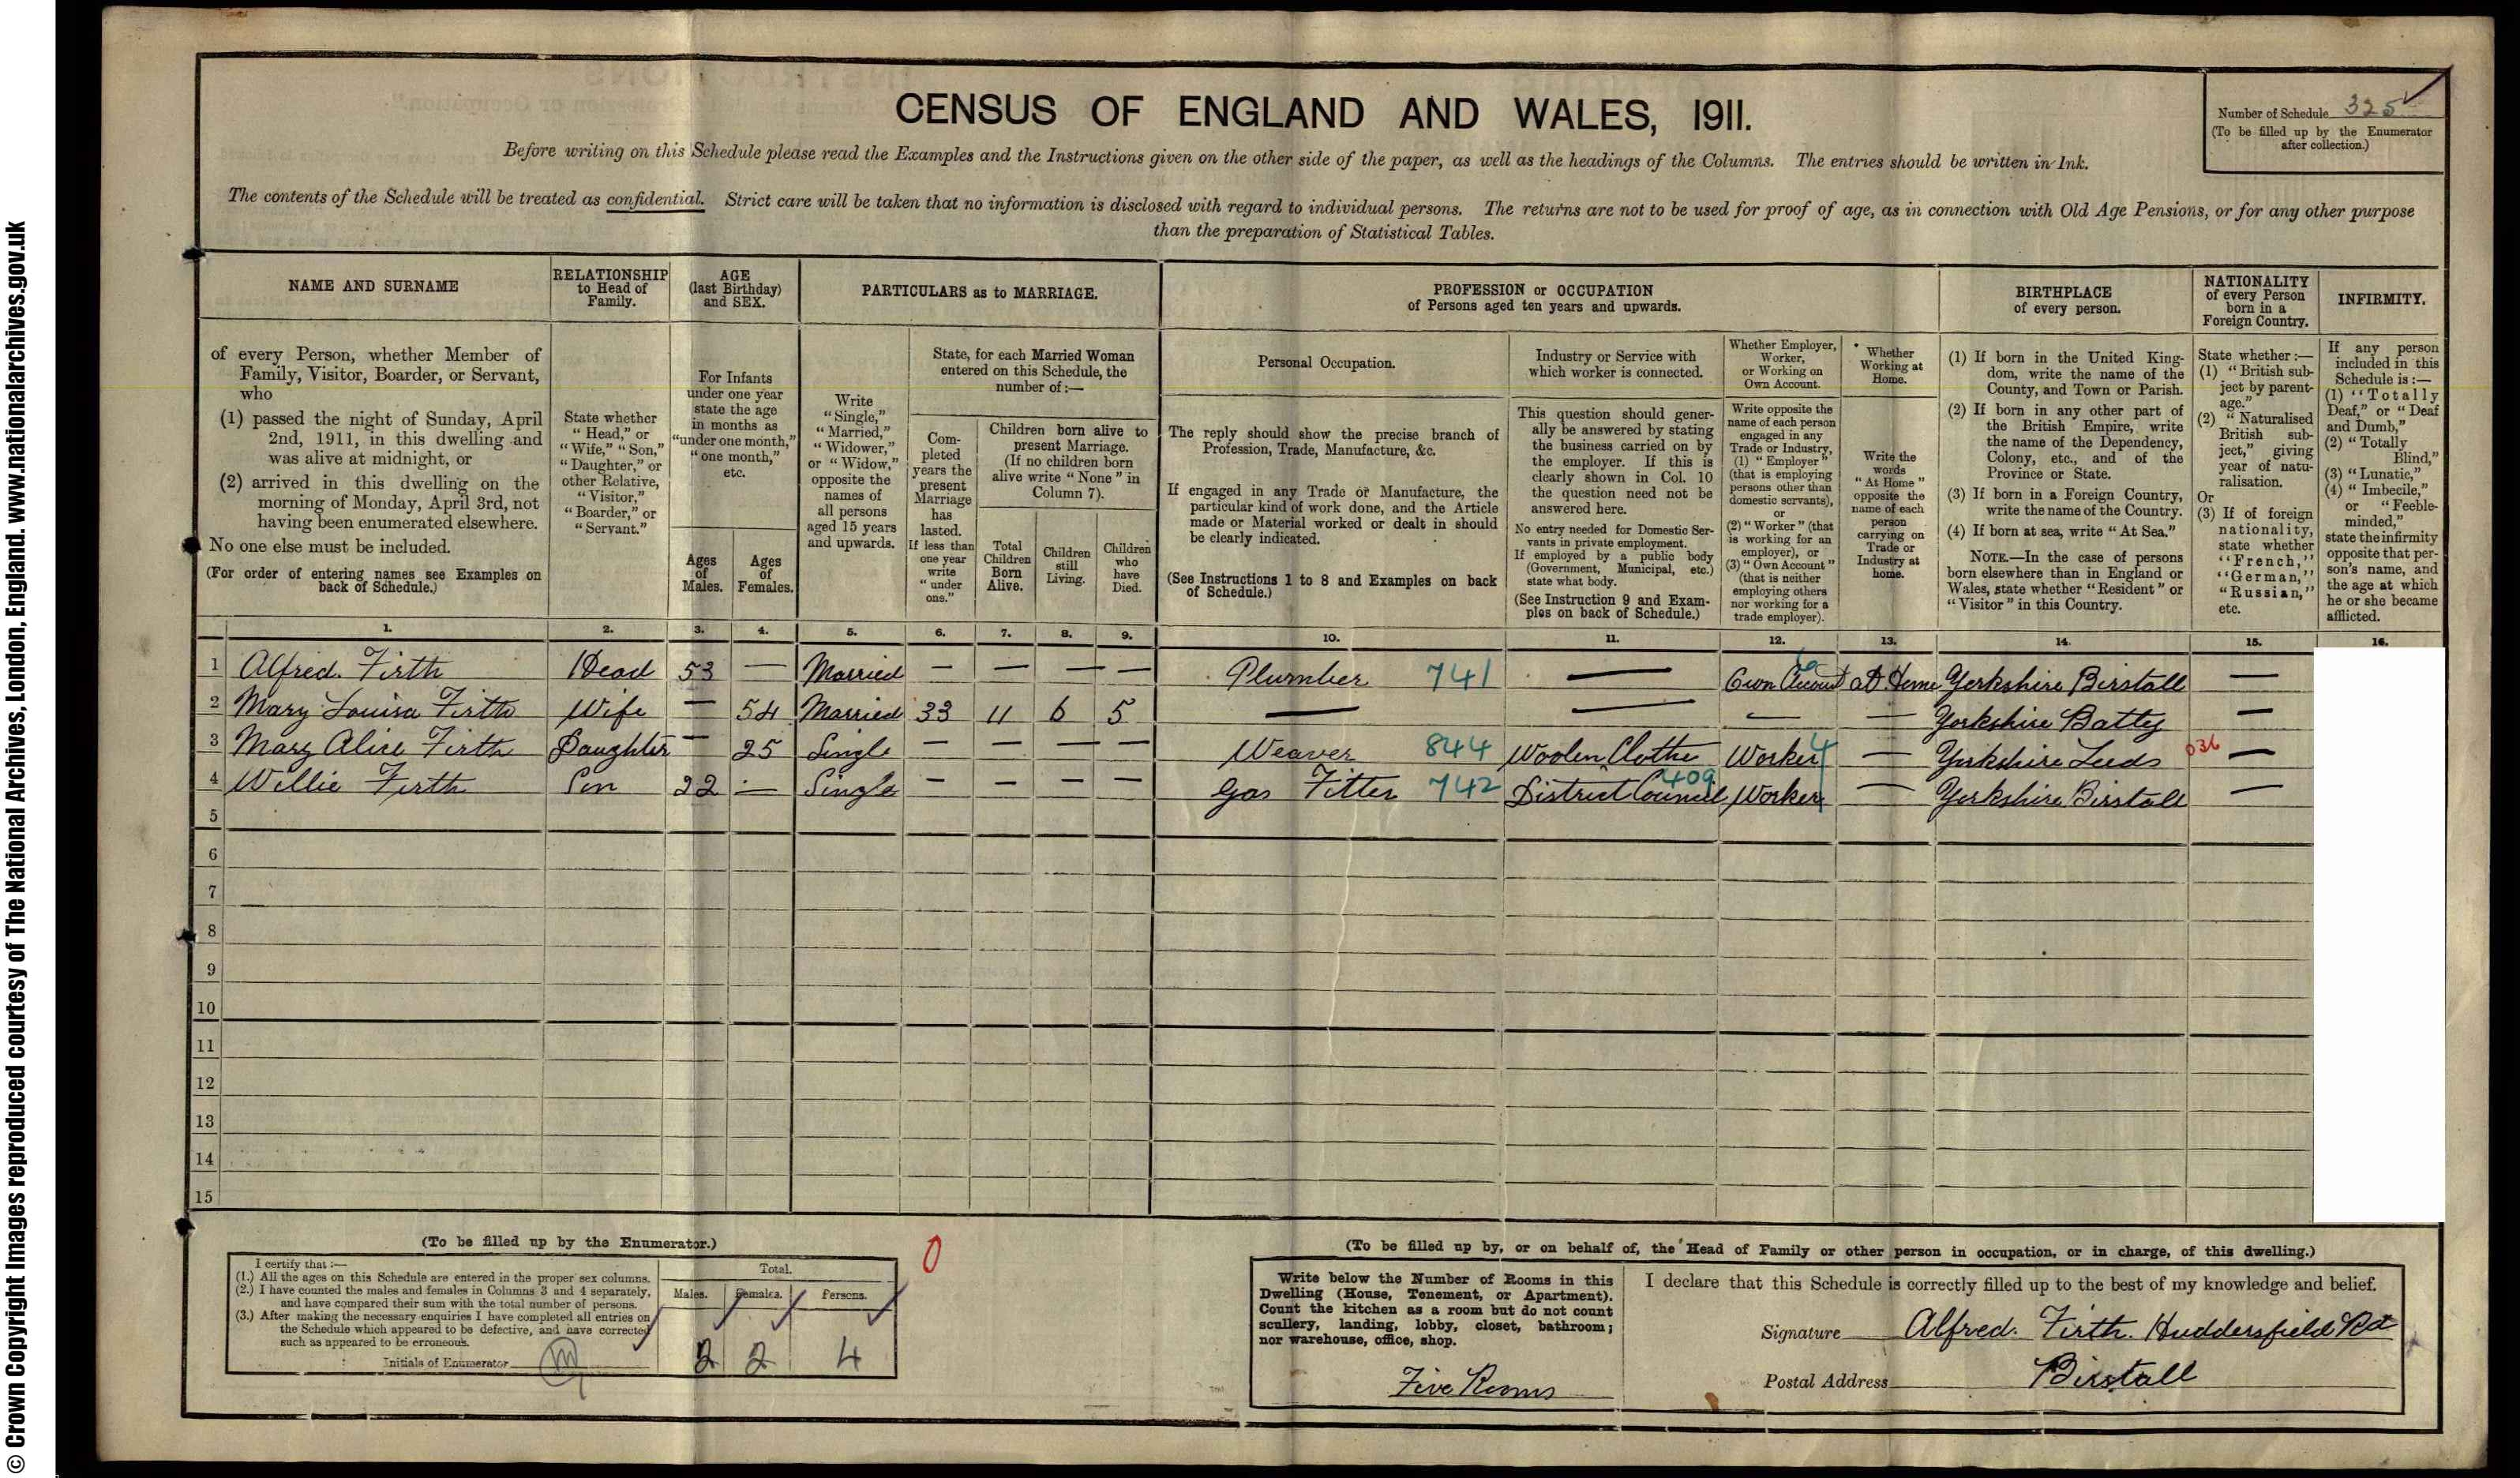 © Crown Copyright Images reproduced courtesy of The National Archives, London, England. www.nationalarchives.gov.uk
CENSUS OF ENGLAND AND WALES, 1911.
Number of Schedule 325
(To be filled up by the Enumerator
after collection.)
Before writing on this Schedule please read the Examples and the Instructions given on the other side of the paper, as well as the headings of the Columns. The entries should be written in Ink.
The contents of the Schedule will be treated as confidential. Strict care will be taken that no information is disclosed with regard to individual persons. The returns are not to be used for proof of age, as in connection with Old Age Pensions, or for any other purpose
than the preparation of Statistical Tables.
NAME AND SURNAME
of every Person, whether Member of
Family, Visitor, Boarder, or Servant,
who
(1) passed the night of Sunday, April
2nd, 1911, in this dwelling and
was alive at midnight, or
(2) arrived in this dwelling on the
morning of Monday, April 3rd, not
having been enumerated elsewhere.
No one else must be included.
(For order of entering names see Examples on
back of Schedule.)
RELATIONSHIP
to Head of
Family.
State whether
"Head," or
"Wife," "Son,"
"Daughter," or
other Relative,
"Visitor,"
"Boarder," or
"Servant."
AGE
(last Birthday)
and SEX.
For Infants
under one year
state the age
in months as
"under one month,"
"one month,"
etc.
Ages
of
Males.
Ages
of
Females.
PARTICULARS as to MARRIAGE.
Write
"Single,"
"Married,"
"Widower,"
or "Widow,"
opposite the
names of
all persons
aged 15 years
and upwards.
State, for each Married Woman
entered on this Schedule, the
number of:—
Com-
pleted
years the
present
Marriage
has
lasted.
If less than
one year
write
"under
one."
Children born alive to
present Marriage.
(If no children born
alive write "None" in
Column 7).
Total
Children
Born
Alive.
Children
still
Living.
Children
who
have
Died.
PROFESSION or OCCUPATION
of Persons aged ten years and upwards.
Personal Occupation.
The reply should show the precise branch of
Profession, Trade, Manufacture, &c.
If engaged in any Trade or Manufacture, the
particular kind of work done, and the Article
made or Material worked or dealt in should
be clearly indicated.
(See Instructions 1 to 8 and Examples on back
of Schedule.)
Industry or Service with
which worker is connected.
This question should gener-
ally be answered by stating
the business carried on by
the employer. If this is
clearly shown in Col. 10
the question need not be
answered here.
No entry needed for Domestic Ser-
vants in private employment.
If employed by a public body
(Government, Municipal, etc.)
state what body.
(See Instruction 9 and Exam-
ples on back of Schedule.)
Whether Employer,
Worker,
or Working on
Own Account.
Write opposite the
name of each person
engaged in any
Trade or Industry,
(1) "Employer"
(that is employing
persons other than
domestic servants),
or
(2) "Worker" (that
is working for an
employer), or
(3) "Own Account"
(that is neither
employing others
nor working for a
trade employer).
Whether
Working at
Home.
Write the
words
"At Home"
opposite the
name of each
person
carrying on
Trade or
Industry at
home.
BIRTHPLACE
of every person.
(1) If born in the United King-
dom, write the name of the
County, and Town or Parish.
(2) If born in any other part of
the British Empire, write
the name of the Dependency,
Colony, etc., and of the
Province or State.
(3) If born in a Foreign Country,
write the name of the Country.
(4) If born at sea, write "At Sea."
NOTE.—In the case of persons
born elsewhere than in England or
Wales, state whether "Resident" or
"Visitor" in this Country.
NATIONALITY
of every Person
born in a
Foreign Country.
State whether:—
(1) "British sub-
ject by parent-
age."
(2) "Naturalised
British sub-
ject," giving
year of natu-
ralisation.
Or
(3) If of foreign
nationality,
state whether
"French,"
"German,"
"Russian,"
etc.
INFIRMITY.
If any person
included in this
Schedule is:—
(1) "Totally
Deaf," or "Deaf
and Dumb,"
(2) "Totally
Blind,"
(3) "Lunatic,"
(4) "Imbecile,"
or "Feeble-
minded,"
state the infirmity
opposite that per-
son's name, and
the age at which
he or she became
afflicted.
1. 2. 3. 4. 5. 6. 7. 8. 9. 10. 11. 12. 13. 14. 15. 16.
1 Alfred. Firth Head 53 — Married — — — — Plumber 741 — Own Account at Home Yorkshire Birstall —
2 Mary Louisa Firth Wife — 54 Married 33 11 6 5 — — — — Yorkshire Batley —
3 Mary Alice Firth Daughter — 25 Single — — — — Weaver 844 Woolen Clothe Worker 4 — Yorkshire Leeds 036 —
4 Willie Firth Son 22 — Single — — — — Gas Fitter 742 District Council 409 Worker — Yorkshire Birstall —
5
6
7
8
9
10
11
12
13
14
15
(To be filled up by the Enumerator.)
I certify that:—
(1.) All the ages on this Schedule are entered in the proper sex columns.
(2.) I have counted the males and females in Columns 3 and 4 separately,
and have compared their sum with the total number of persons.
(3.) After making the necessary enquiries I have completed all entries on
the Schedule which appeared to be defective, and have corrected
such as appeared to be erroneous.
Initials of Enumerator
Total.
Males. Females. Persons.
2 2 4
0
(To be filled up by, or on behalf of, the Head of Family or other person in occupation, or in charge, of this dwelling.)
Write below the Number of Rooms in this
Dwelling (House, Tenement, or Apartment).
Count the kitchen as a room but do not count
scullery, landing, lobby, closet, bathroom;
nor warehouse, office, shop.
Five Rooms
I declare that this Schedule is correctly filled up to the best of my knowledge and belief.
Signature Alfred. Firth. Huddersfield Rd
Postal Address Birstall